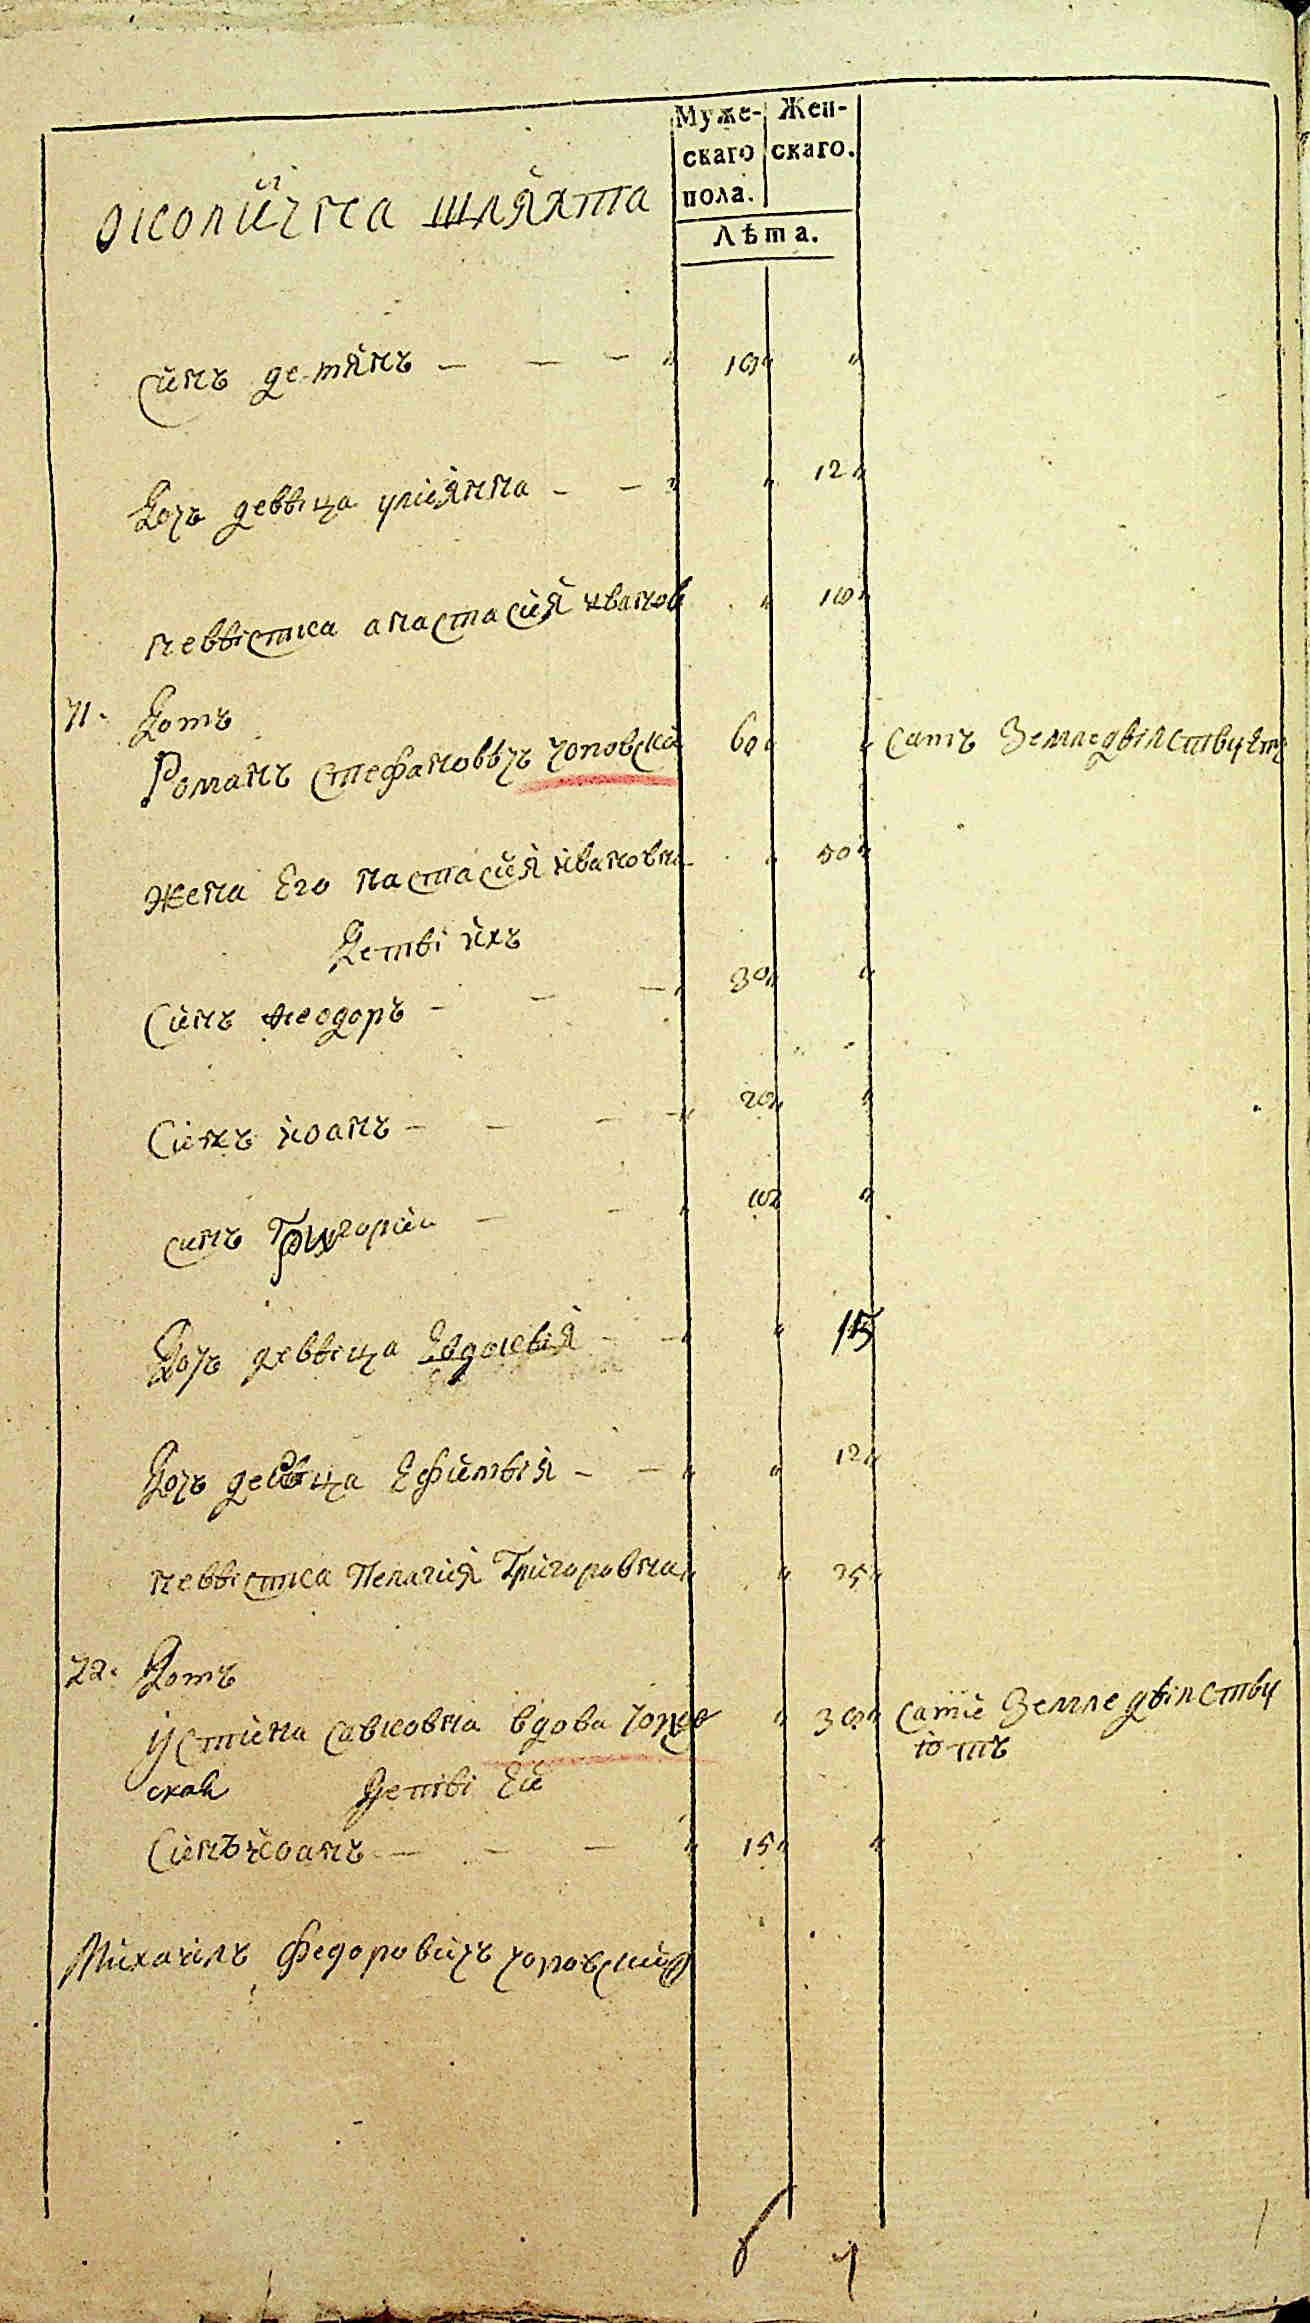 Муже- Жен-
скаго скаго.
пола.
Лѣта.
околична шляхта
Синъ демянъ — — — „ 10„ „
Дочъ девѣца улиянна — — „ „ 12„
невѣстка анастасия иванов „
71. Домъ
Романъ стефановѣчъ чоповски 60„ „ самъ Землѣдѣлствуетъ
жена Его настасия ивановна „ 50„
Детѣ ихъ
Синъ феодоръ — — — „ 30„ „
Синъ иоанъ — — — — „ 20„ „
синъ Григории — — „ „
Дочъ девѣца Евдокѣя — — „ „ 15
Дочъ девѣца Ефимѣя — — „ „ 12„
невѣстка Пелагия Григоровна „ „ 25„
72. Домъ
Устина савковна вдова Чопов „ 30„ сами Земледѣлству
ская Детѣ Еи ютъ
Синъ иоанъ — — — „ 15„ „
Михаилъ Федоровичъ чоповский